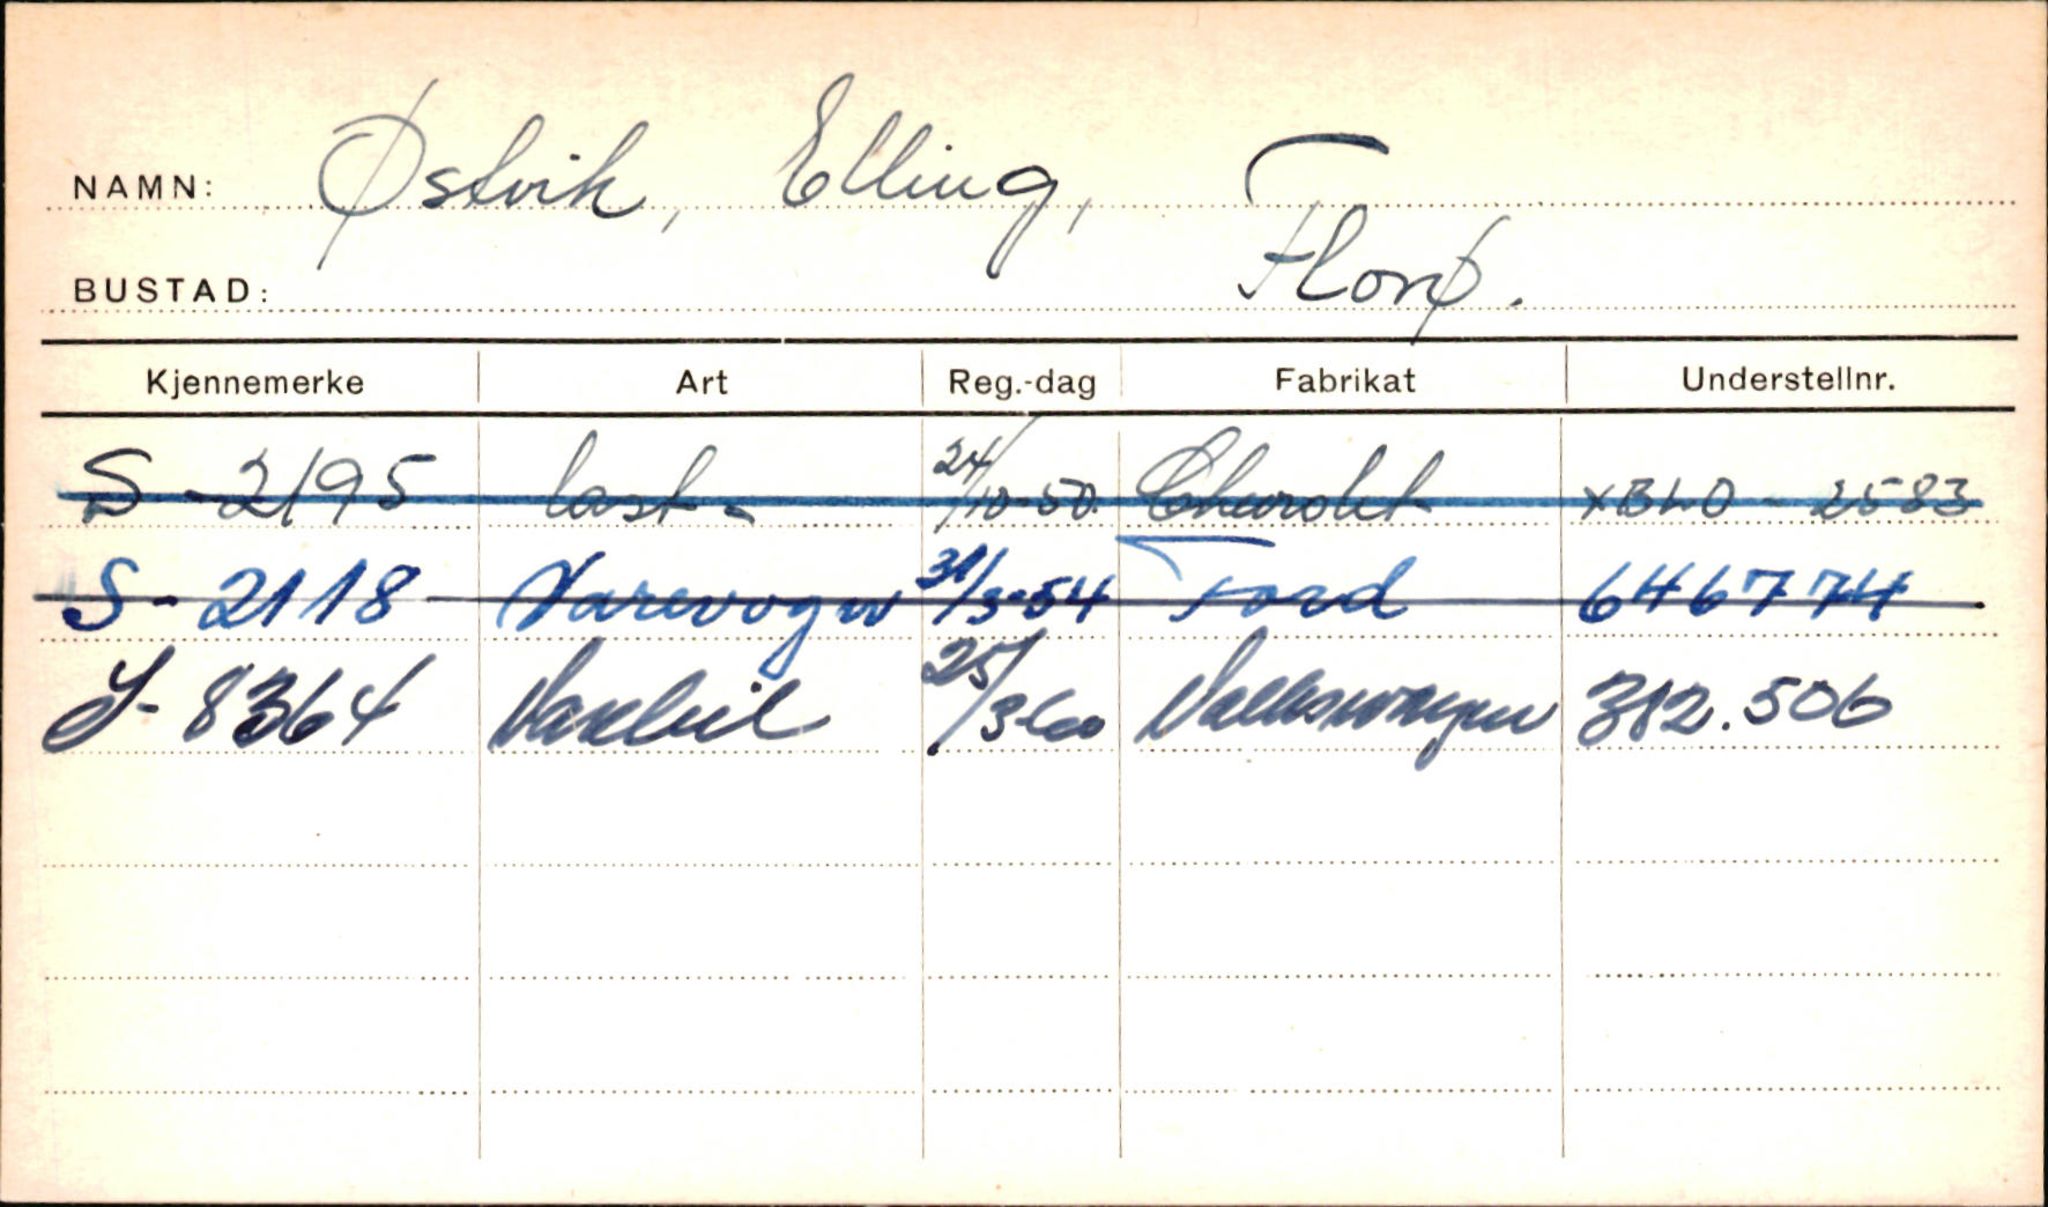 NAMN: Østvik, Elling,
BUSTAD: Florø.
Kjennemerke Art Reg.-dag Fabrikat Understellnr.
S - 2195 last- 24/10-50. Chevrolet XBLO - 2583
S - 2118 Varevogn 31/3-54 Ford 646774
S- 8364 Varebil 25/3-60 Volkswagen 382.506